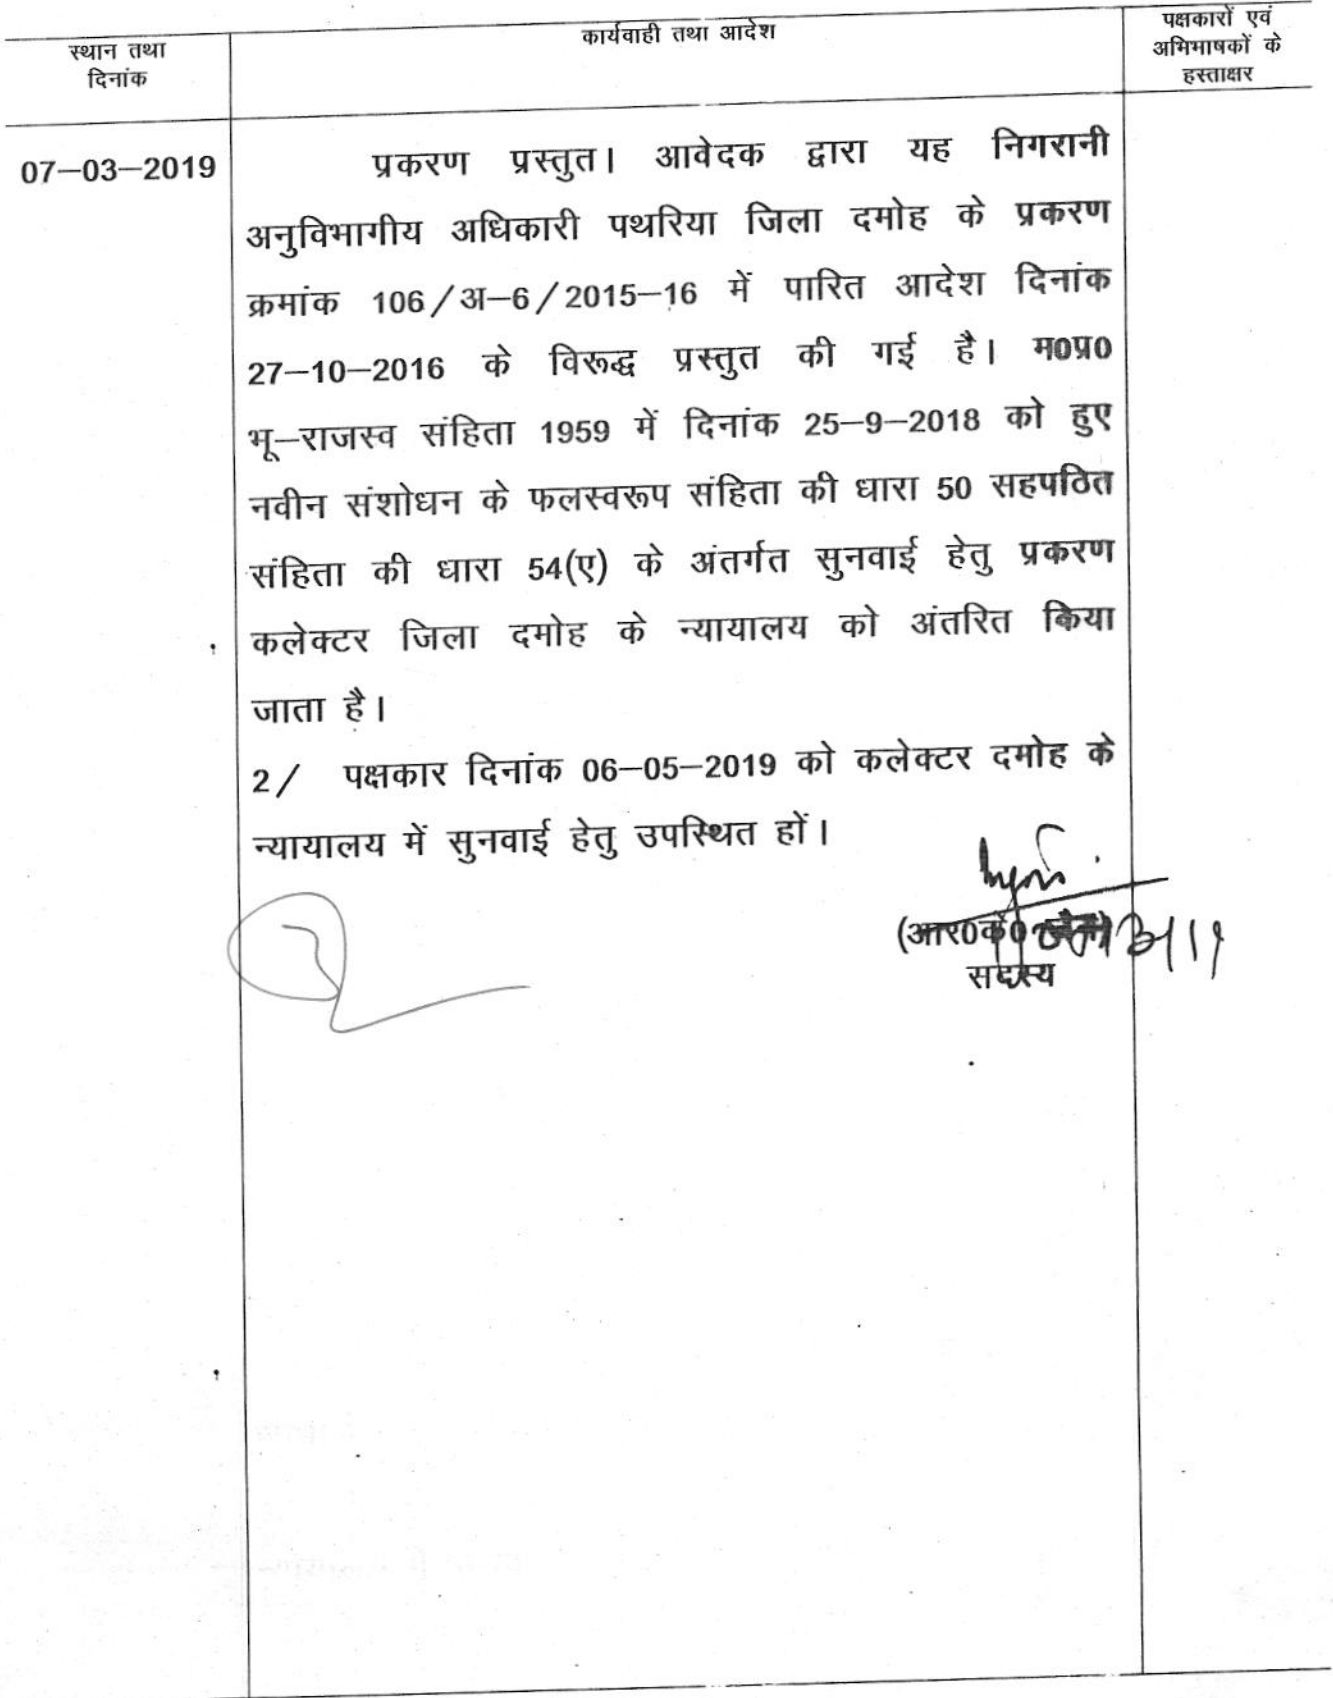 स्थान तथा
दिनांक
कार्यवाही तथा आदेश
पक्षकारों एवं
अभिभाषकों के
हस्ताक्षर
07–03–2019
प्रकरण प्रस्तुत। आवेदक द्वारा यह निगरानी
अनुविभागीय अधिकारी पथरिया जिला दमोह के प्रकरण
क्रमांक 106/अ–6/2015–16 में पारित आदेश दिनांक
27–10–2016 के विरूद्ध प्रस्तुत की गई है। म0प्र0
भू–राजस्व संहिता 1959 में दिनांक 25–9–2018 को हुए
नवीन संशोधन के फलस्वरूप संहिता की धारा 50 सहपठित
संहिता की धारा 54(ए) के अंतर्गत सुनवाई हेतु प्रकरण
कलेक्टर जिला दमोह के न्यायालय को अंतरित किया
जाता है।
2/ पक्षकार दिनांक 06–05–2019 को कलेक्टर दमोह के
न्यायालय में सुनवाई हेतु उपस्थित हों।
(आर0के0
सदस्य